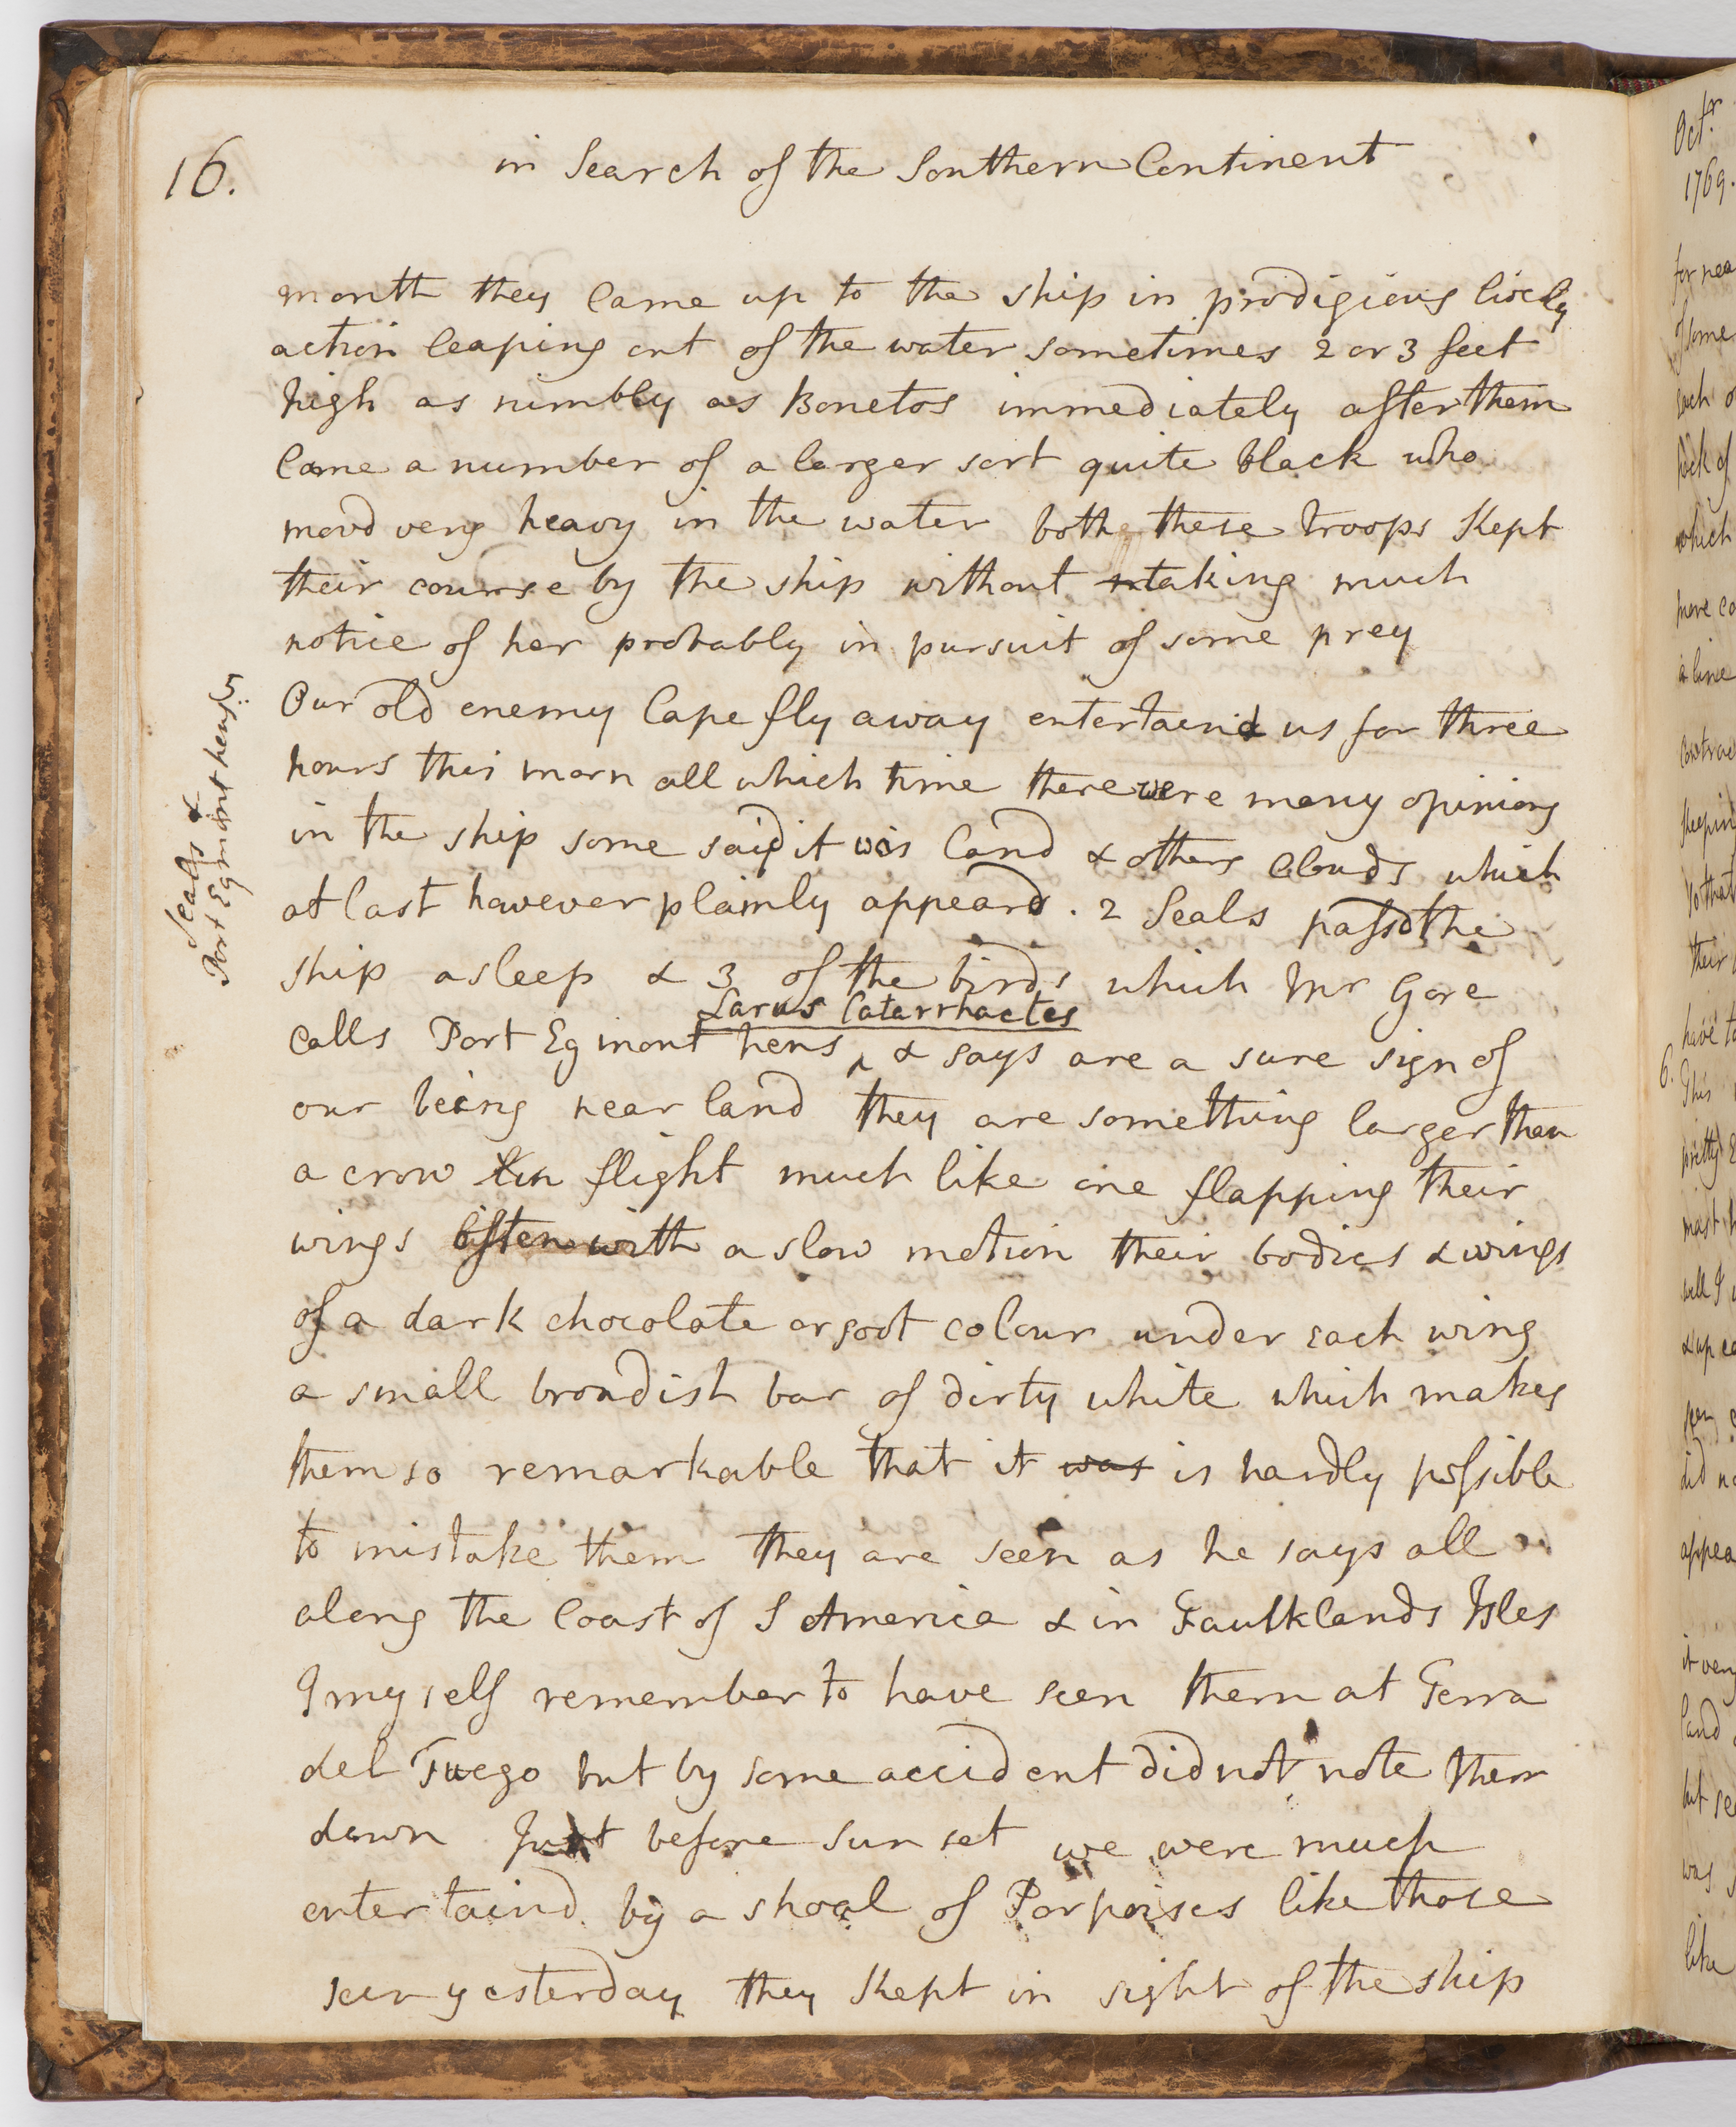 16.
in Search of the Southern Continent
month they came up to the ship in prodigious lively
action leaping out of the water sometimes 2 or 3 feet
high as nimbly as Bonetos immediately after them
came a number of a larger sort quite black who
movd very heavy in the water bothe these troops kept
their course by the ship without taking much
notice of her probably in pursuit of some prey
5.
Seals &
Port Egmont hens
Our old enemy Cape fly away entertaind us for three
hours this morn all which time there were many opinions
in the ship some said it was land & others clouds which
at last however plainly appeard. 2 Seals passd the
ship asleep & 3 of the birds which Mr Gore
Larus Catarrhactes
calls Port Egmont hens ‸ & says are a sure sign of
our being near land they are something larger than
a crow in flight much like one flapping their
wings often with a slow motion their bodies & wings
of a dark chocolate or soot colour under each wing
a small broadish bar of dirty white which makes
them so remarkable that it was is hardly possible
to mistake them they are seen as he says all
along the Coast of S America & in Faulklands Isles
I myself remember to have seen them at Terra
del Fuego but by some accident did not note them
down Just before sun set we were much
entertaind by a shoal of Porpoises like those
seen yesterday they kept in sight of the ship
Octr
1769.
for nea
of some
such o
back of
which
more co
a line
contrae
their
have to
6.
This
pretty
mast h
well I
& up
did no
appea
it very
land
but se
was
like